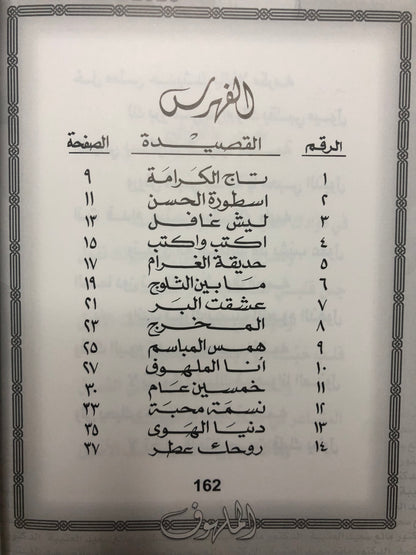 الفهرس
الرقم القصيدة الصفحة
١ تاج الكرامة ٩
٢ اسطورة الحسن ١١
٣ ليش غافل ١٣
٤ اكتب واكتب ١٥
٥ حديقة الغرام ١٧
٦ ما بين الثلوج ١٩
٧ عشقت البر ٢١
٨ المخرج ٢٣
٩ همس المباسم ٢٥
١٠ أنا الملهوف ٢٧
١١ خمسين عام ٣٠
١٢ نسمة محبة ٣٣
١٣ دنيا الهوى ٣٥
١٤ روحك عطر ٣٧
162
الملهوف